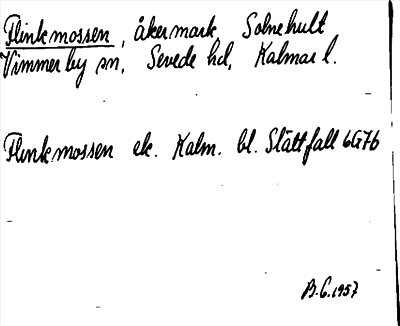 Flinkmossen, åkermark, Solnehult
Vimmerby sn, Sevede hd, Kalmar l.
Flinkmossen ek. Kalm. bl. Slättfall 6G7b
B.G. 1957